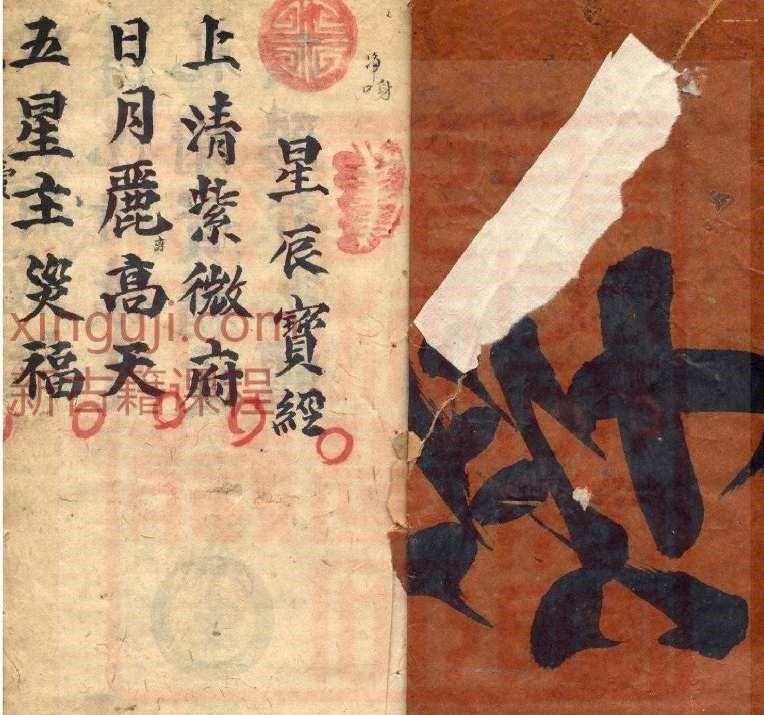 星辰寶經
上清紫微府
日月麗高天
五星主災福
xinguji.com
新古籍课程